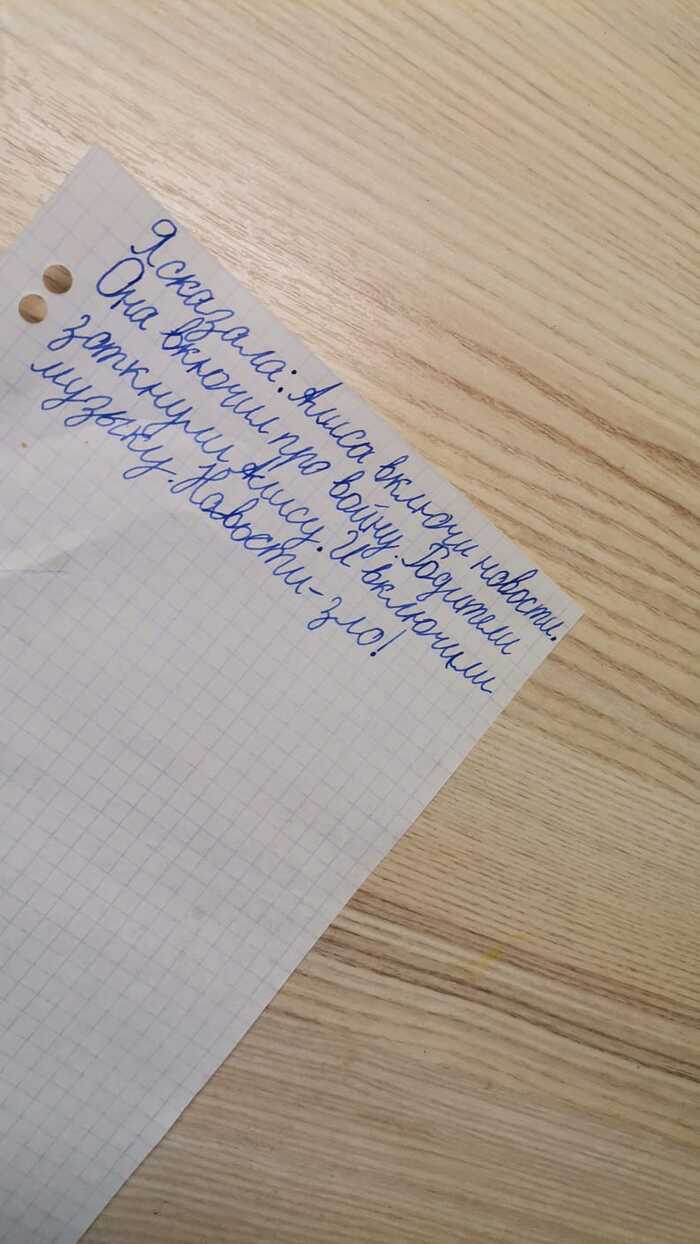 Я сказала: Алиса включи новости.
Она включил про войну. Родители
заткнули Алису. И включили
музыку. Новости-зло!